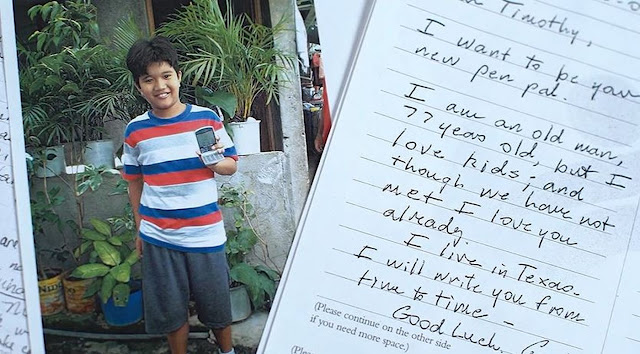 Timothy,
I want to be your
new pen pal.
I am an old man,
77 years old, but I
love kids; and
though we have not
met I love you
already.
I live in Texas.
I will write you from
time to time –
Good Luck.
(Please continue on the other side
if you need more space.)